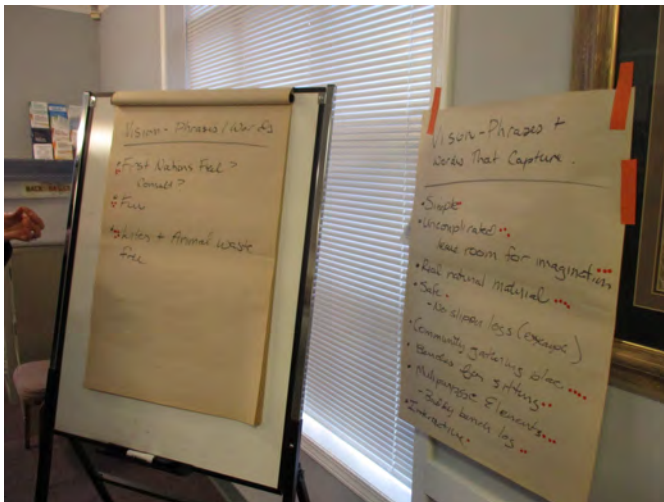 Vision - Phrases / Words
First Nations Feel?
Consult?
Fun
Litter + Animal Waste
free
Vision - Phrases +
Words That Capture.
Simple
Uncomplicated
leave room for imagination
Real natural material
Safe
- No slipper logs (
Community gathering place
Benches for sitting
Multipurpose Elements
- Buddy bench log
Interactive